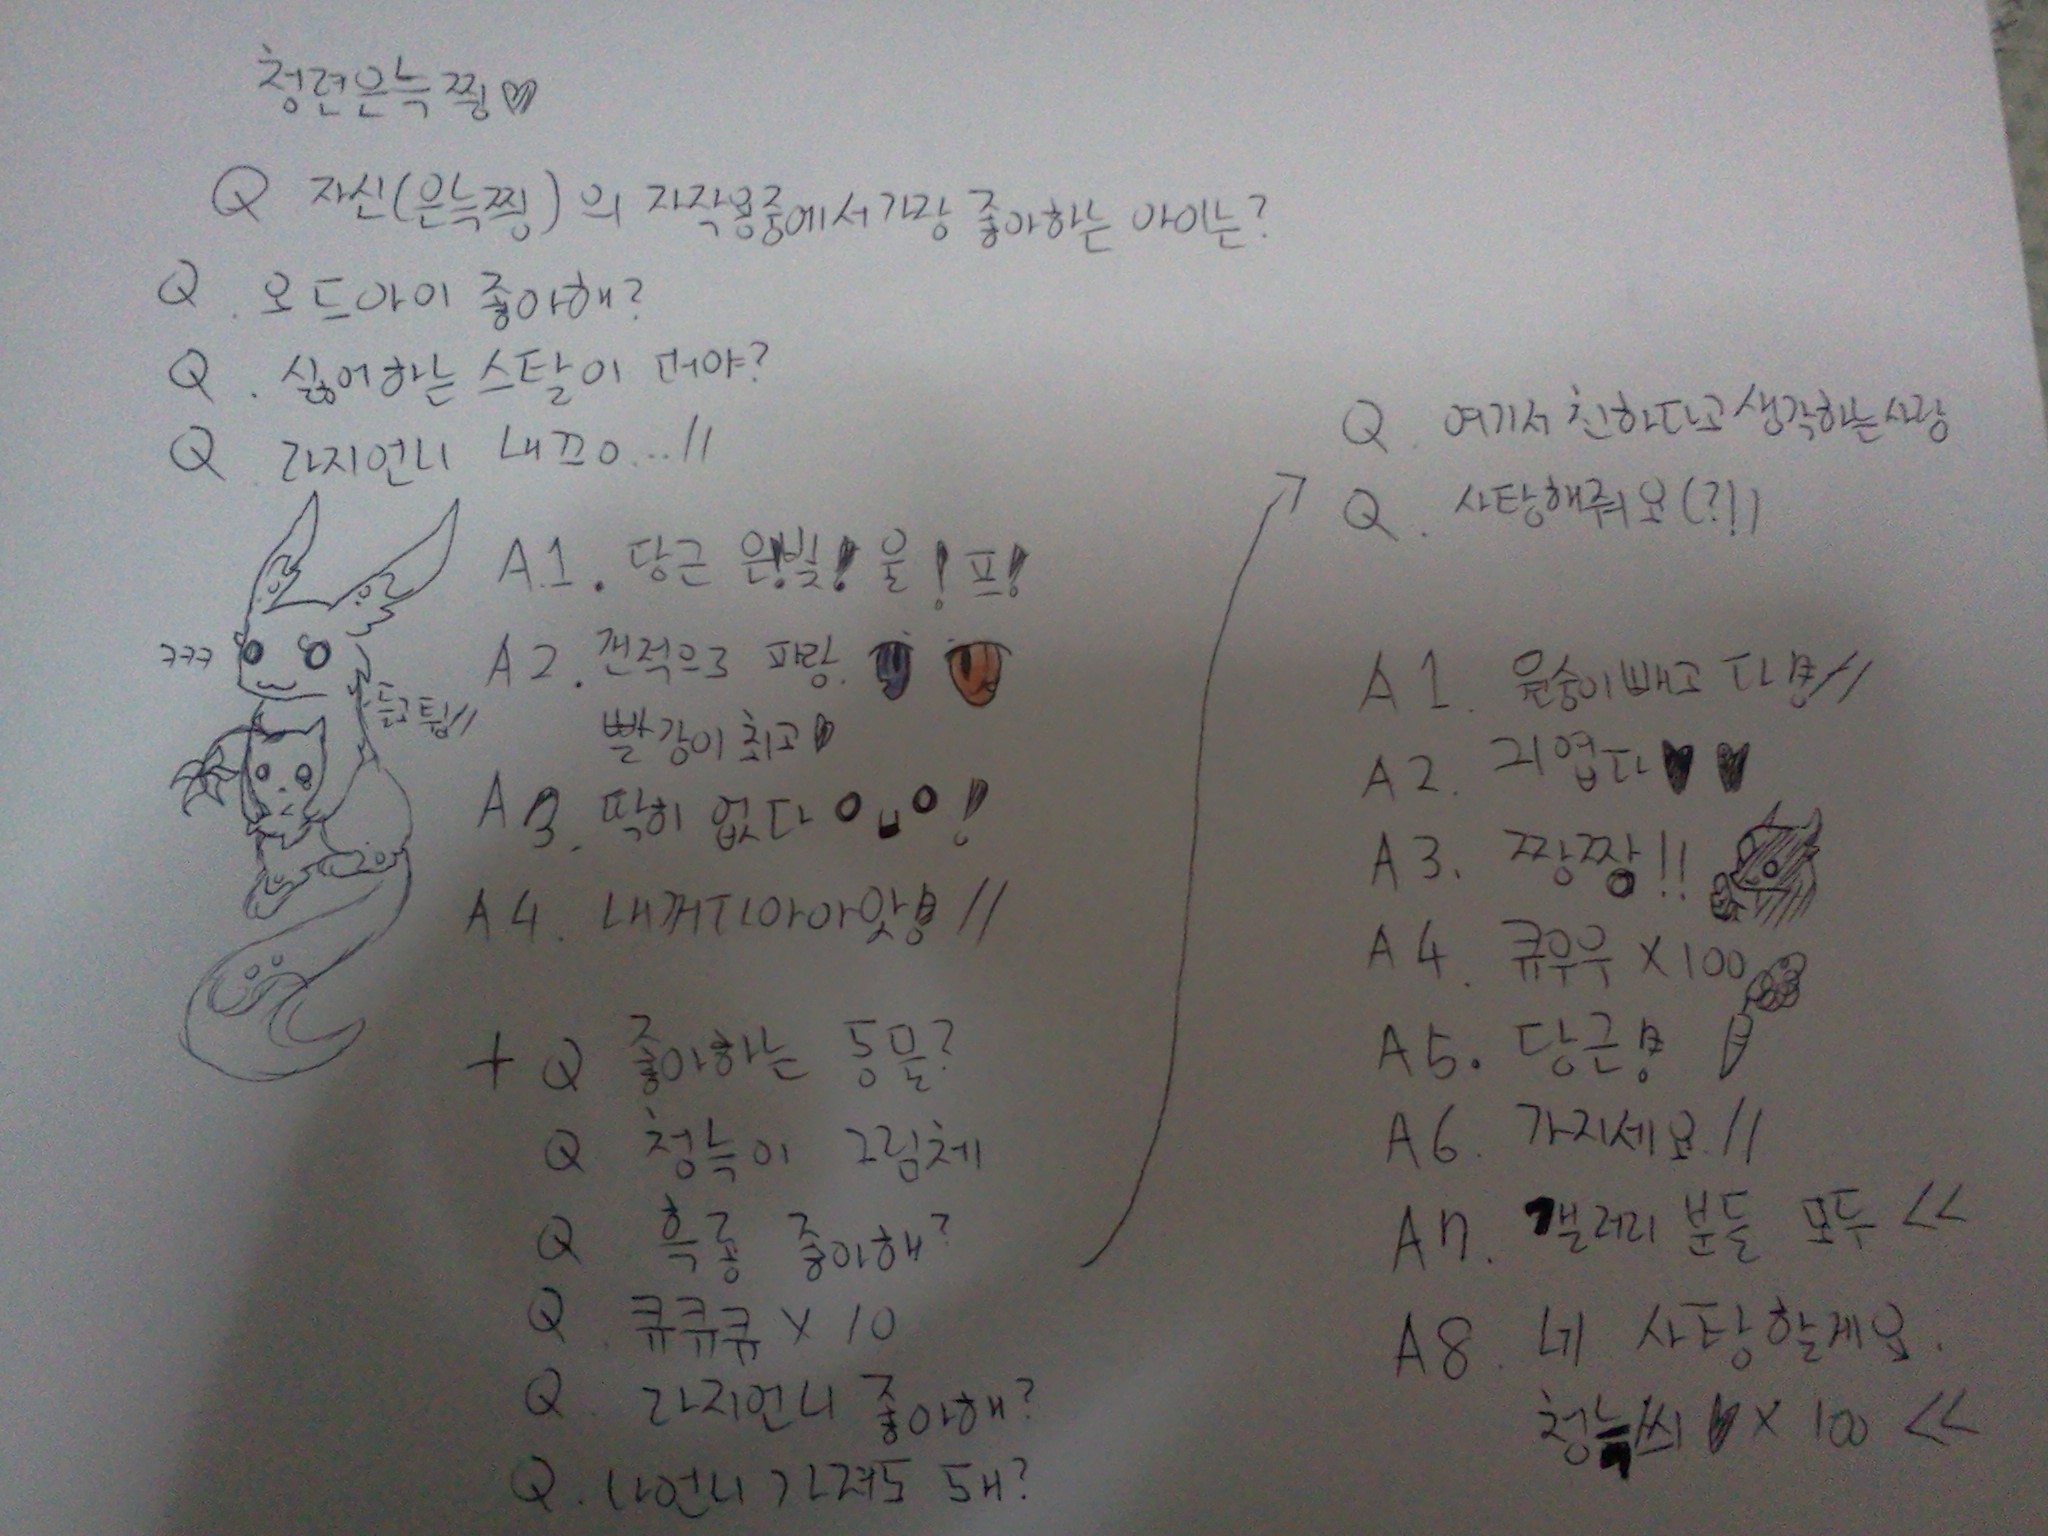 청련은늑찡♡
Q 자신(은늑찡)의 자작룡중에서 가장 좋아하는 아이는?
Q. 오드아이 좋아해?
Q. 싫어하는 스탈이 머야?
Q. 라지언니 내끄ㅇ...//
ㅋㅋㅋ
A1. 당근 은!빛! 울! 프!
A2. 갠적으로 파랑.
빨강이 최고♥
A3. 딱히 없다 !
A4. 내꺼디아아앙 //
+ Q 좋아하는 동물?
Q 청늑이 그림체
Q 흑룡 좋아해?
Q. 큐큐큐 X 10
Q. 라지언니 좋아해?
Q. 나언니 가져도 돼?
Q. 여기서 친하다고 생각하는 사람
Q. 사탕해줘요(?!)
A1. 원숭이 빼고 다 //
A2. 귀엽다♥♥
A3. 짱짱!!
A4. 큐우우 X 100
A5. 당근
A6. 가지세요.//
A7. 갤러리 분들 모두 <<
A8. 네 사탕할게요.
청늑씨 ♥ X 100 <<